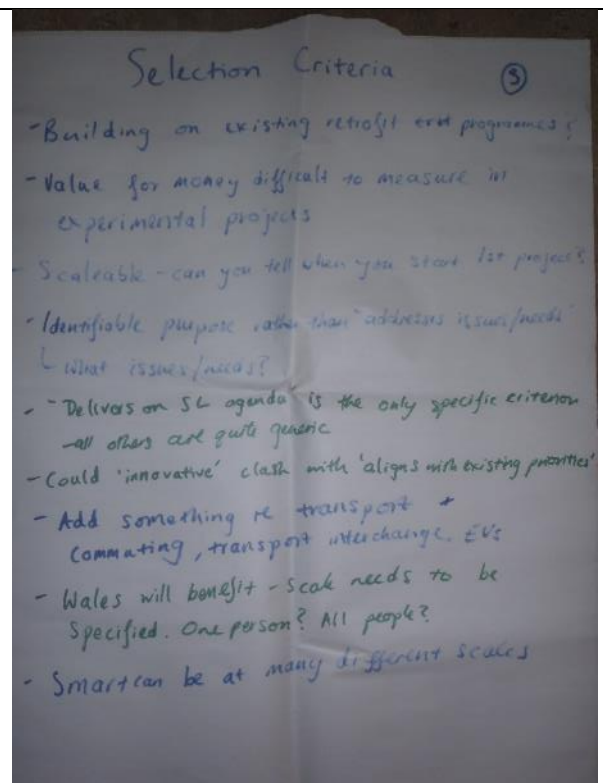 Selection Criteria
③
- Building on existing retrofit programmes?
- Value for money difficult to measure in
experimental projects
- Scaleable - can you tell when you start 1st project?
- Identifiable purpose rather than "addresses issues/needs"
└ What issues/needs?
- "Delivers on SL agenda" is the only specific criterion
- all others are quite generic
- Could 'innovative' clash with 'aligns with existing priorities'
- Add something re transport +
Commuting, transport interchange, EVs
- Wales will benefit - scale needs to be
Specified. One person? All people?
- Smart can be at many different scales